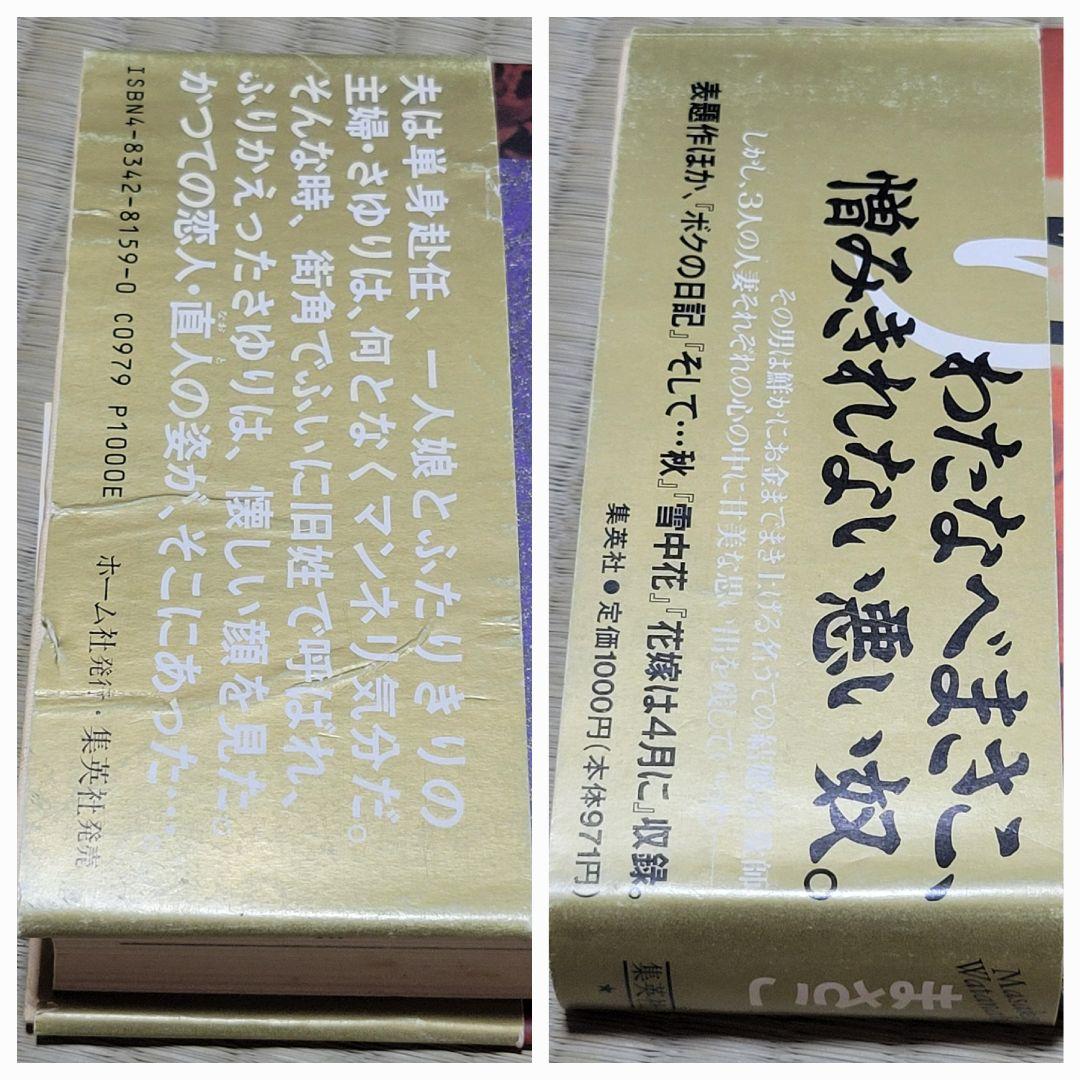 夫は単身赴任、一人娘とふたりきりの
主婦・さゆりは、何となくマンネリ気分だ。
そんな時、街角でふいに旧姓で呼ばれ、
ふりかえったさゆりは、懐しい顔を見た。
かつての恋人・直人の姿が、そこにあった…。
なおと
ISBN4-8342-8159-0 C0979 P1000E
ホーム社発行・集英社発売
わたなべまさこ、
憎みきれない悪い奴。
その男は鮮かにお金までまき上げる名うての結婚詐欺師
しかし、3人の人妻それぞれの心の中に甘美な思い出を残して
表題作ほか、『ボクの日記』『そして…秋』『雪中花』『花嫁は4月に』収録。
集英社●定価1000円(本体971円)
まさこ
集英